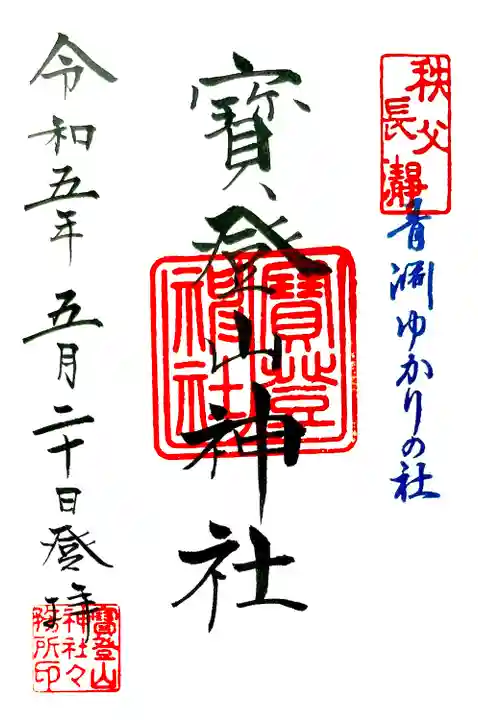 秩父
長瀞
青渊ゆかりの社
寳登山神社
寳登山
神社
令和五年五月二十日登拝
寳登山
神社々
務所印